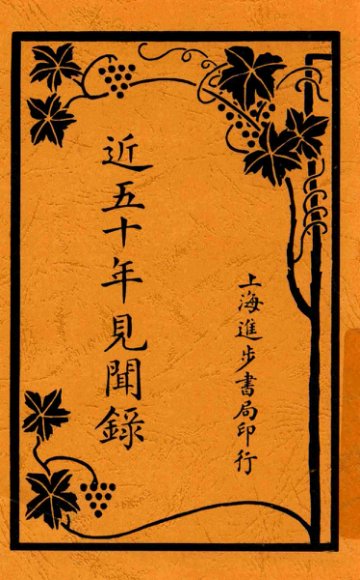 上海進步書局印行
近五十年見聞錄